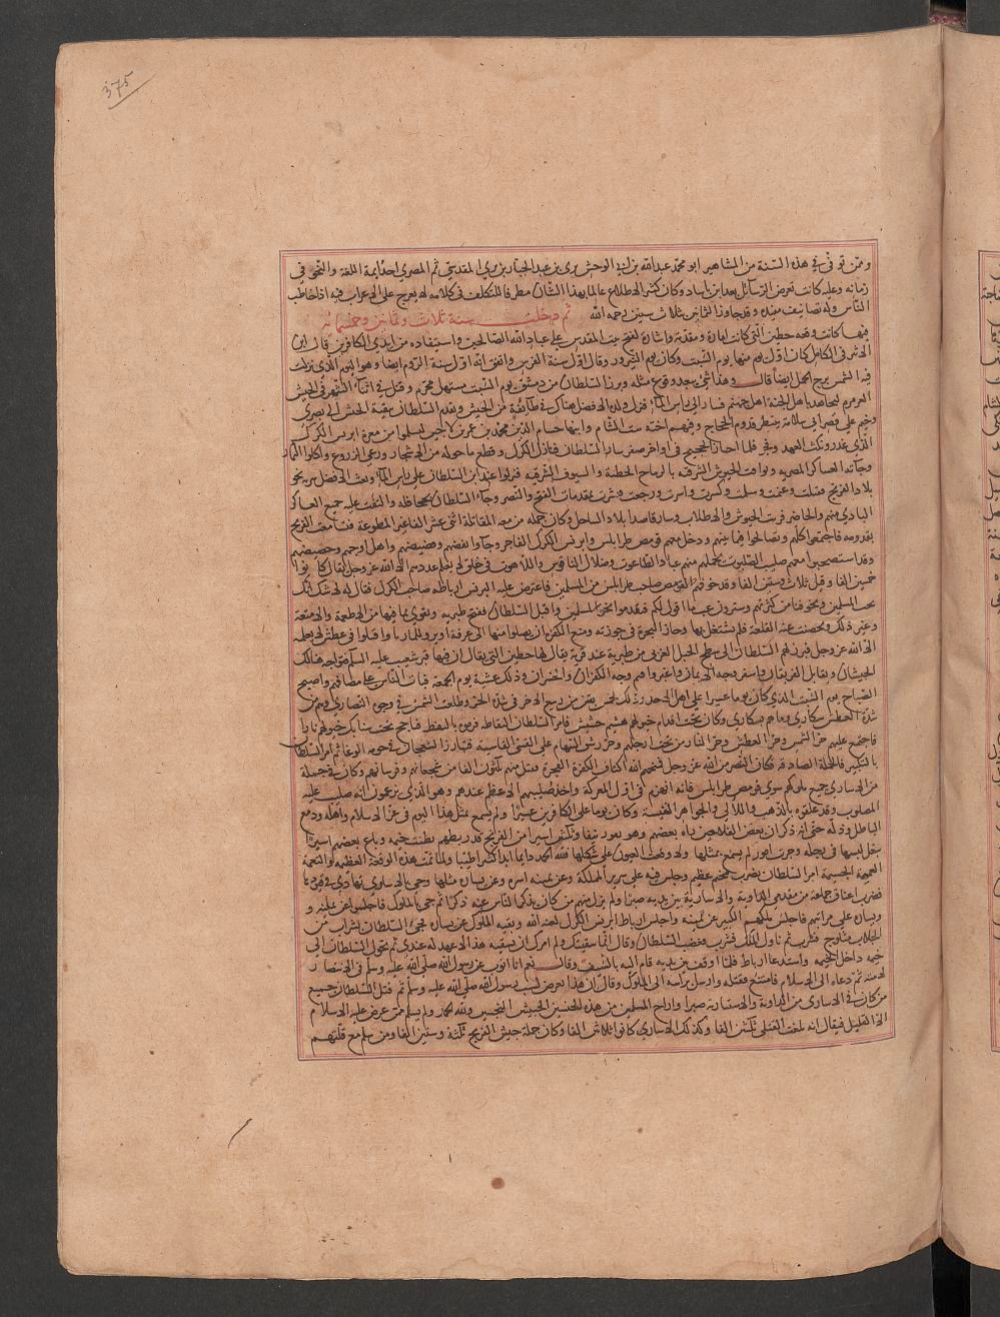 375
وممن توفي في هذه السنة من المشاهير ابو محمد عبدالله بن ابي الوحش بري بن عبد الجبار بن بري المقدسي ثم المصري احد ايمة اللغة والنحو في
زمانه وعليه كانت تعرض الرسائل بعد ابن بابشاد وكان كثير الاطلاع عالما بهذا الشان مطرحا للتكلف في كلامه لا يعرج على الاعراب فيه اذا خاطب
الناس وله تصانيف مفيدة وقد جاوز الثمانين بثلاث سنين رحمه الله ثم دخلت سنة ثلاث وثمانين وخمسمائة
فيها كانت وقعة حطين التي كانت امارة ومقدمة واشارة لفتح بيت المقدس على عباد الله الصالحين واستنقاذه من ايدي الكافرين قال ابن
الاثير في الكامل كان اول يوم منها يوم السبت وكان يوم النيروز وقال اول سنة الفرس واتفق انه اول سنة الروم ايضا وهو اليوم الذي نزلت
فيه الشمس برج الحمل ايضا قال وهذا شيء يبعد وقوع مثله وبرز السلطان من دمشق يوم السبت مستهل محرم في الجيش
العرمرم فسار الى راس الماء فنزل ولده الافضل هناك في طايفة من الجيش وتقدم السلطان ببقية الجيش الى بصرى
وخيم على قصر ابي سلامة ينتظر قدوم الحجاج وفيهم اخته ست الشام وابنها حسام الدين محمد بن عمر بن لاجين ليسلموا من معرة ابرنس الكرك
الذي غدر ونكث العهد وفجر فلما اجتاز الحجيج في اواخر صفر سار السلطان فنازل الكرك وقطع ما حوله من الاشجار ورعى الزروع واكلوا الثمار
وجاته العساكر المصرية وتوافت الجيوش الشرقية بالرماح الخطية والسيوف المشرفية فنزلوا عند ابن السلطان على راس الماء وبعث الافضل سرية نحو
بلاد الفرنج فقتلت وغنمت وسلمت وكسرت واسرت ورجعت فبشرت بمقدمات الفتح والنصر وجاء السلطان بجحافله والتفت عليه جميع العساكر
البادي منهم والحاضر فرتب الجيوش والاطلاب وسار قاصدا بلاد الساحل وكان جملة من معه من المقاتلة اثنى عشر الفا غير المطوعة فتسامعت الفرنج
بقدومه فاجتمعوا كلهم وتصالحوا فيما بينهم ودخل معهم قومص طرابلس وابرنس الكرك الفاجر وجاءوا بقضهم وقضيضهم
وقد استصحبوا معهم صليب الصلبوت يحمله منهم عباد الطاغوت وضلال الناسوت واللاهوت في خلق لا يعلم عددهم الا الله عز وجل يقال كانوا
خمسين الفا وقيل ثلاث وستين الفا وقد خوفهم القومص صاحب طرابلس من المسلمين فاعترض عليه البرنس ارباط صاحب الكرك فقال له لا شك انك
تحب المسلمين وتخوفنا من كثرتهم وسترون غب ما اقول لكم فتقدموا نحو المسلمين واقبل السلطان ففتح طبرية وتقوى بما فيها من الاطعمة والامتعة
وغير ذلك وتحصنت عنه القلعة فلم يشتغل بها وحاز البحيرة في حوزته ومنع الكفرة ان يصلوا منها الى غرفة او يروا للماء ريا واقبلوا في عطش لا يعلمه
الا الله عز وجل فبرز لهم السلطان الى سطح الجبل الغربي من طبرية عند قرية يقال لها حطين التي يقال ان فيها قبر شعيب عليه السلام فتواجه هنالك
الجيشان وتقابل الفريقان واسفر وجه الايمان واغبر واقتم وجه الكفران والخسران وذلك عشية يوم الجمعة فبات الناس على مصافهم واصبح
الصباح يوم السبت الذي كان يوما عسيرا على اهل الاحد وذلك لخمس بقين من ربيع الاخر وطلعت الشمس في وجوه النصارى وهم من
شدة العطش سكارى وما هم بسكارى وكان تحت اقدام خيولهم هشيم حشيش فامر السلطان النفاطة فرموه بالنفط فتاجج تحت سنابك خيولهم نارا
فاجتمع عليهم حر الشمس وحر العطش وحر النار من تحت ارجلهم وحر رشق السهام عن القسي القاسية فتبارز الشجعان في حومة الوغا ثم امر السلطان
بالتكبير فالحملة الصادقة فكان النصر من الله عز وجل فمنحهم الله اكتاف الكفرة الفجرة فقتل منهم ثلثون الفا من شجعانهم وفرسانهم وكان في جملة
من الاسارى جميع ملوكهم سوى قومص طرابلس فانه انهزم في اول المعركة واخذ صليبهم الاعظم عندهم وهو الذي يزعمون انه صلب عليه
المصلوب وقد غلفوه بالذهب واللآلي والجواهر النفيسة وكان يوما على الكافرين عسيرا ولم يسمع بمثل هذا اليوم في عز الاسلام واهله ودمغ
الباطل وذله حتى انه ذكر ان بعض الفلاحين راه بعضهم وهو يقود نيفا وثلثين اسيرا من الفرنج قد ربطهم بطنب خيمة وباع بعضهم اسيرا
بنعل لبسها في رجله وجرت امور لم يسمع بمثلها ولا وقعت العيون على شكلها فلله الحمد دايما ابدا كثيرا طيبا ولما تمت هذه الوقعة العظيمة والنعمة
العميمة الجسيمة امر السلطان بضرب مخيم عظيم وجلس فيه على سرير المملكة وعن يمينه اسرة وعن يساره مثلها وجيء بالاسارى تتهادى في قيودها
فضرب اعناق جماعة من مقدمي الداوية والاسبتارية بين يديه صبرا ولم يترك منهم من كان يذكر الناس عنه ذكرا ثم جيء بالملوك فاجلسوا عن يمينه و
يساره على مراتبهم فاجلس ملكهم الكبير عن يمينه واجلس ارباط ابرنس الكرك لعنه الله وبقية الملوك عن يساره فجيء السلطان بشراب من
الجلاب مثلوج فشرب ثم ناول الملك فشرب فغضب السلطان وقال انما سقيتك ولم امرك ان تسقيه هذا لا عهد له عندي ثم تحول السلطان الى
خيمة داخل الخيمة واستدعا ارباط فلما اوقف بين يديه قام اليه بالسيف وقال نعم انا انوب عن رسول الله صلى الله عليه وسلم في الانتصار
لامته ثم دعاه الى الاسلام فامتنع فقتله وارسل براسه الى الملوك وقال ان هذا تعرض لسب رسول الله صلى الله عليه وسلم ثم قتل السلطان جميع
من كان في الاسارى من الداوية والاسبتارية صبرا واراح المسلمين من هذين الجنسين الخبيثين النجسين ولله الحمد ولم يسلم ممن عرض عليه الاسلام
الا القليل فيقال انه بلغت القتلى ثلثين الفا وكذلك الاسارى كانوا ثلاثين الفا وكان جملة جيش الفرنج ثلثة وستين الفا ومن سلم مع قلتهم